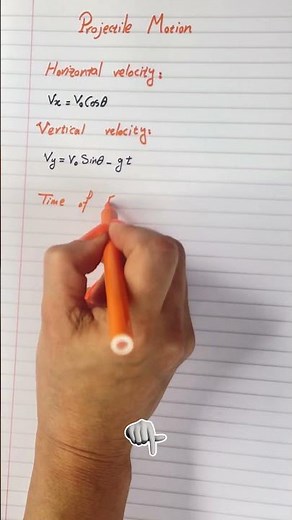 Projectile Motion
Horizontal velocity:
Vx = V₀ Cosθ
Vertical velocity:
Vy = V₀ Sinθ - gt
Time of